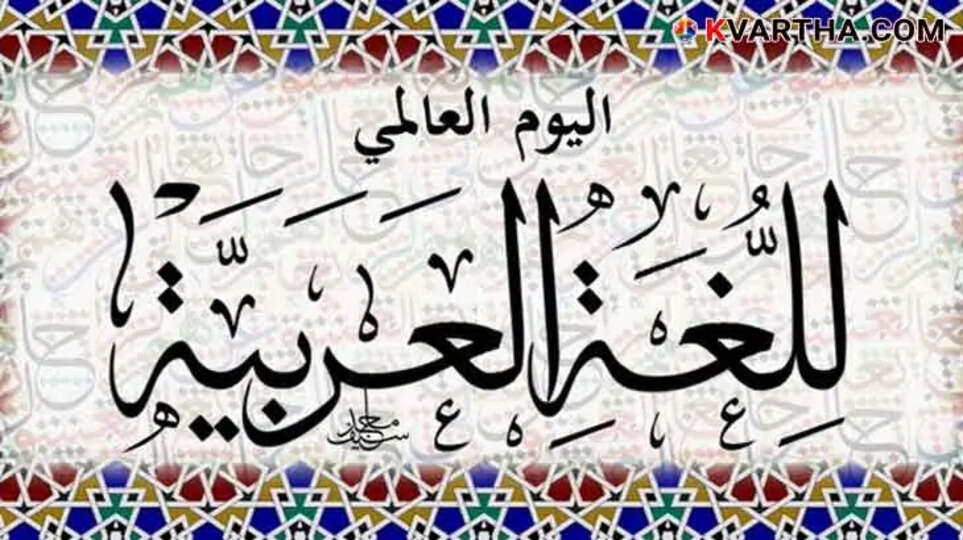 KVARTHA.COM
اليوم العالمي
لِلُّغَةِ العَرَبيَّة